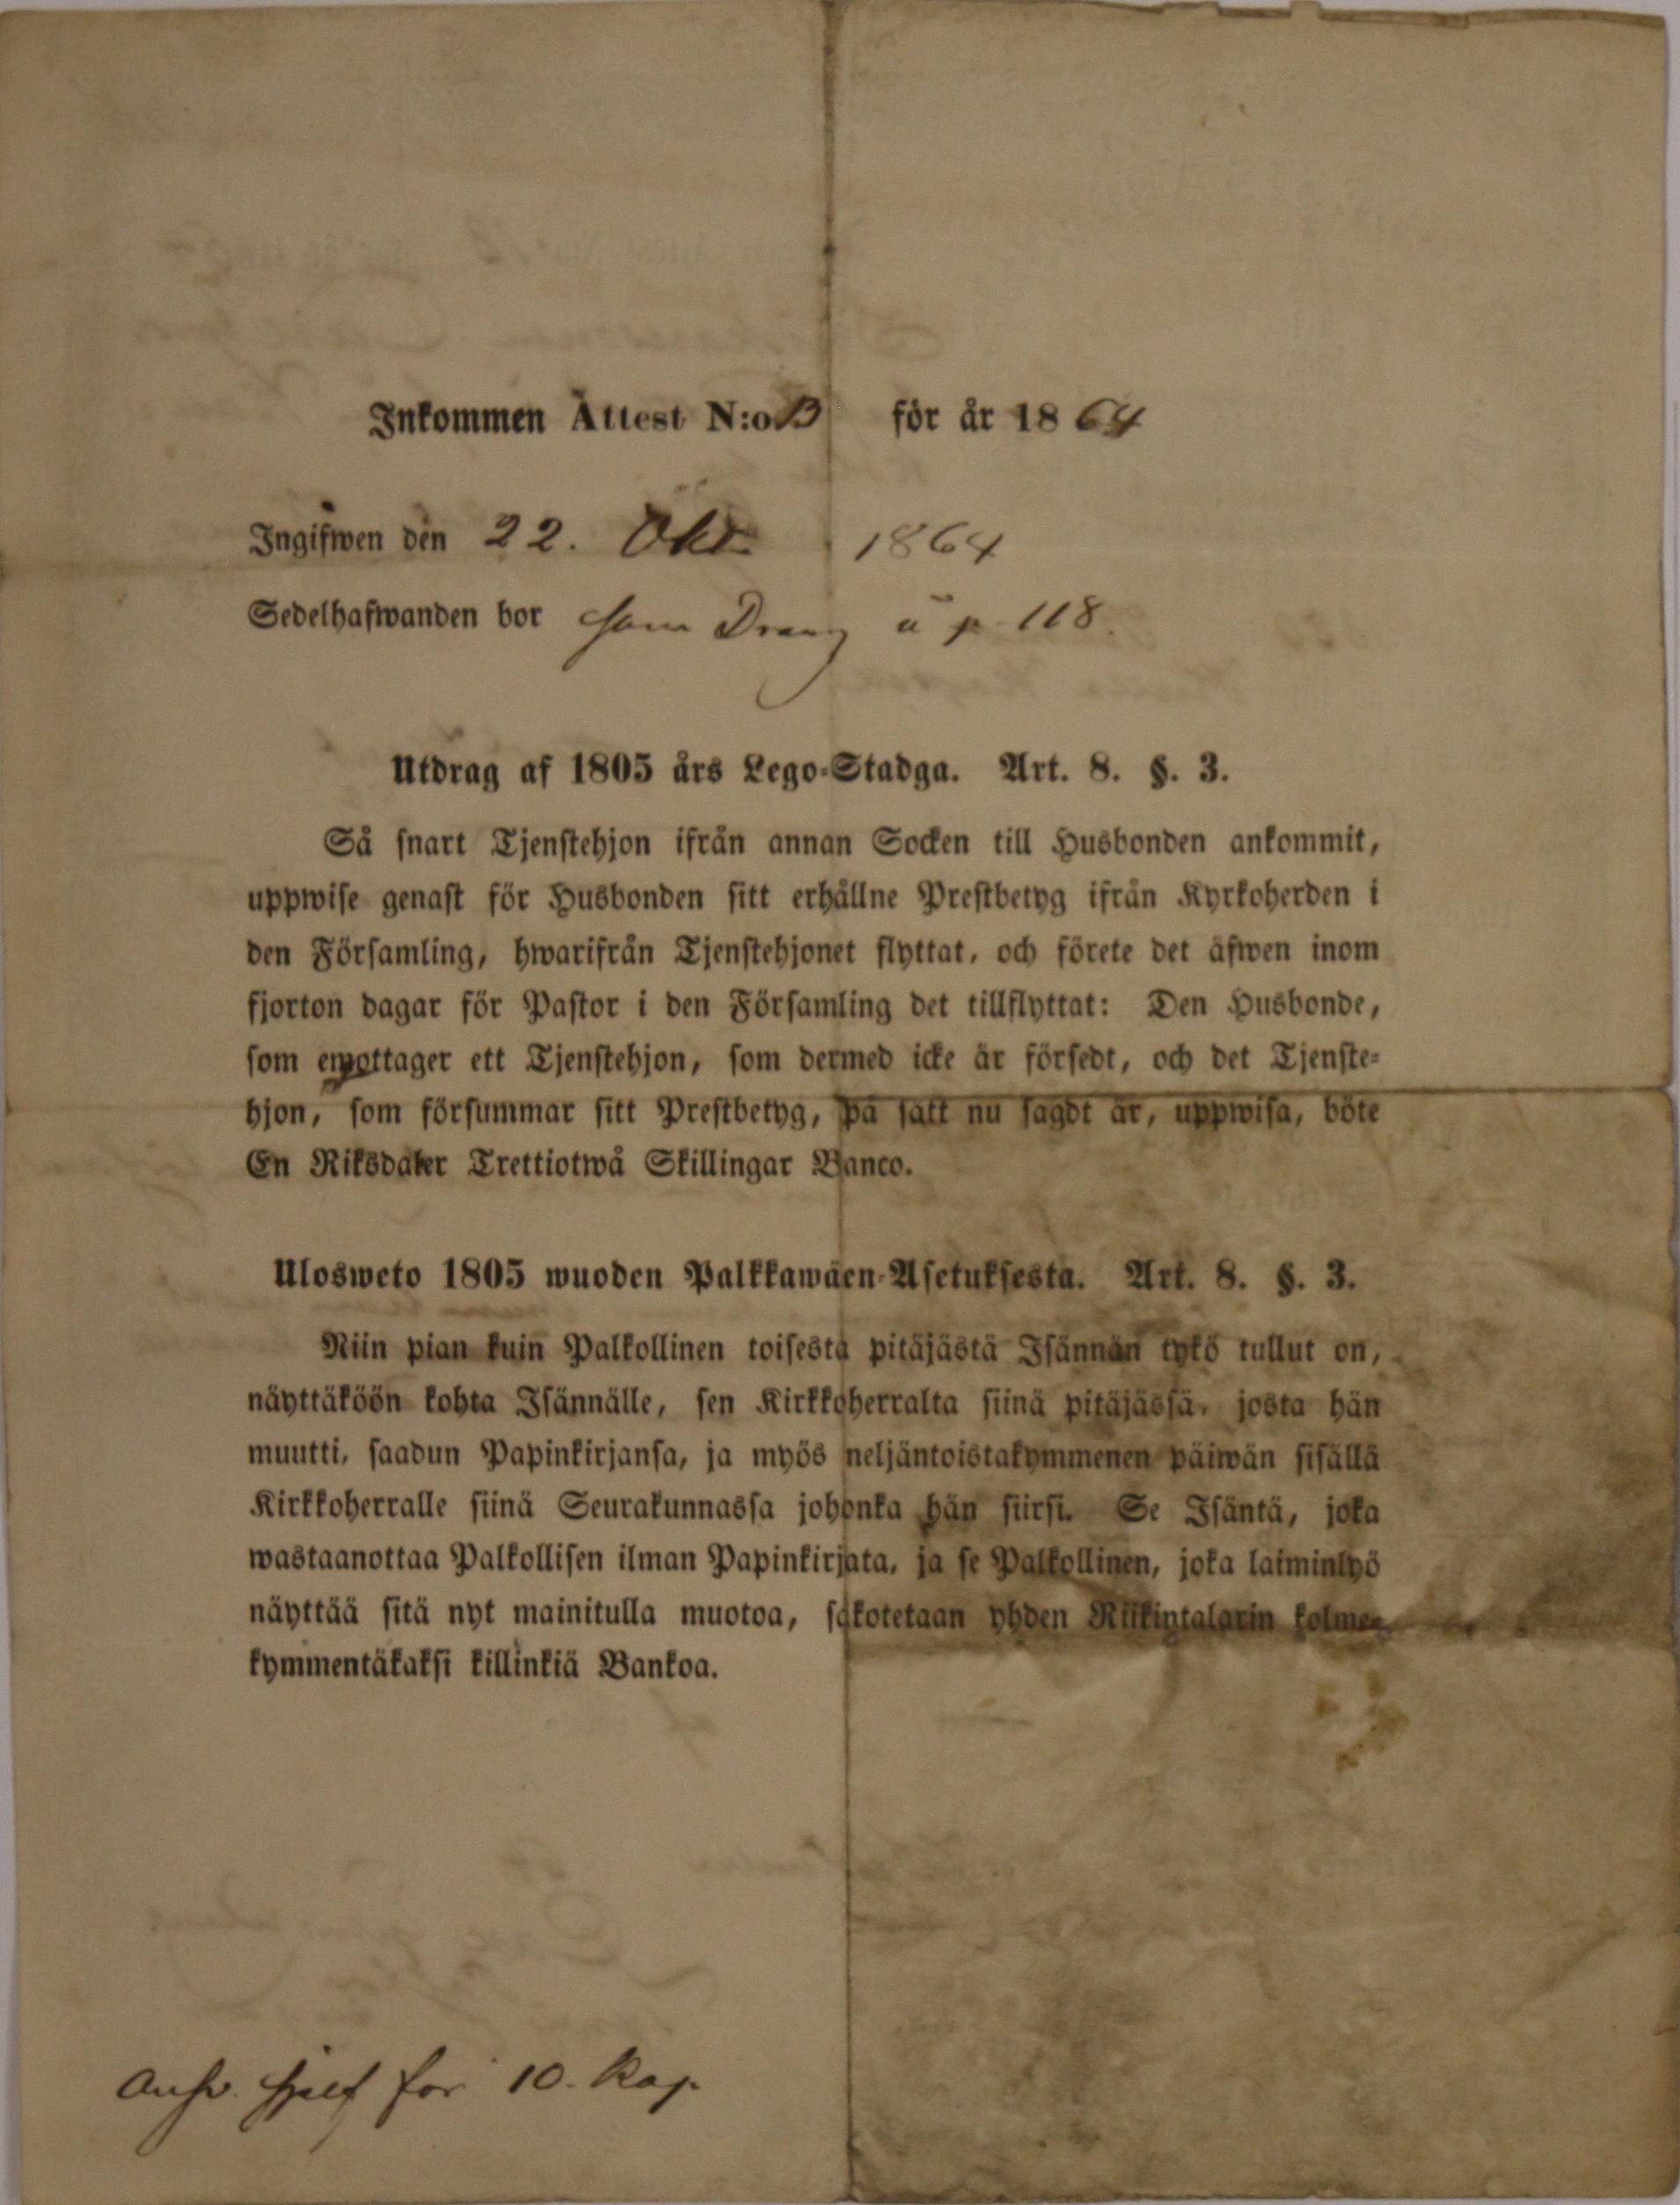 Inkommen Attest N:o 13 för år 1864
Ingifwen den 22. Okt. 1864
Sedelhafwanden bor som Dreng å p 118.
Utdrag af 1805 års Lego-Stadga. Art. 8. §. 3.
Så snart Tjenstehjon ifrån annan Socken till Husbonden ankommit,
uppwise genast för Husbonden sitt erhållne Prestbetyg ifrån Kyrkoherden i
den Församling, hwarifrån Tjenstehjonet flyttat, och förete det äfwen inom
fjorton dagar för Pastor i den Församling det tillflyttat: Den Husbonde,
som emottager ett Tjenstehjon, som dermed icke är försedt, och det Tjenste-
hjon, som försummar sitt Prestbetyg, på sätt nu sagdt är, uppwisa, böte
En Riksdaler Trettiotwå Skillingar Banco.
Ulosweto 1805 wuoden Palkkawäen-Asetuksesta. Art. 8. §. 3.
Niin pian kuin Palkollinen toisesta pitäjästä Isännän tykö tullut on,
näyttäköön kohta Isännälle, sen Kirkkoherralta siinä pitäjässä, josta hän
muutti, saadun Papinkirjansa, ja myös neljäntoistakymmenen päiwän sisällä
Kirkkoherralle siinä Seurakunnassa johonka hän siirsi. Se Isäntä, joka
wastaanottaa Palkollisen ilman Papinkirjata, ja se Palkollinen, joka laiminlyö
näyttää sitä nyt mainitulla muotoa, sakotetaan yhden Riikintalarin kolme-
kymmentäkaksi killinkiä Bankoa.
sjelf för 10. Kop.